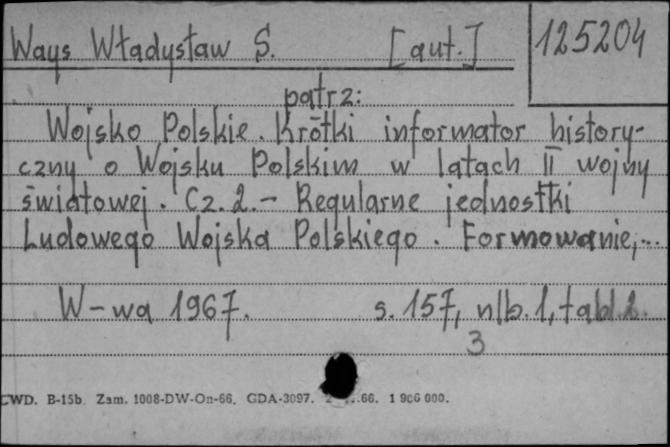 Ways Władysław S. [aut.] 125204
patrz:
Wojsko Polskie. Krótki informator history-
czny o Wojsku Polskim w latach II wojny
światowej. Cz. 2. – Regularne jednostki
Ludowego Wojska Polskiego. Formowanie,...
W-wa 1967. s. 157, nlb. 1, tabl. 2.
3
CWD. B-15b. Zam. 1008-DW-On-66. GDA-3097. .66. 1 906 000.